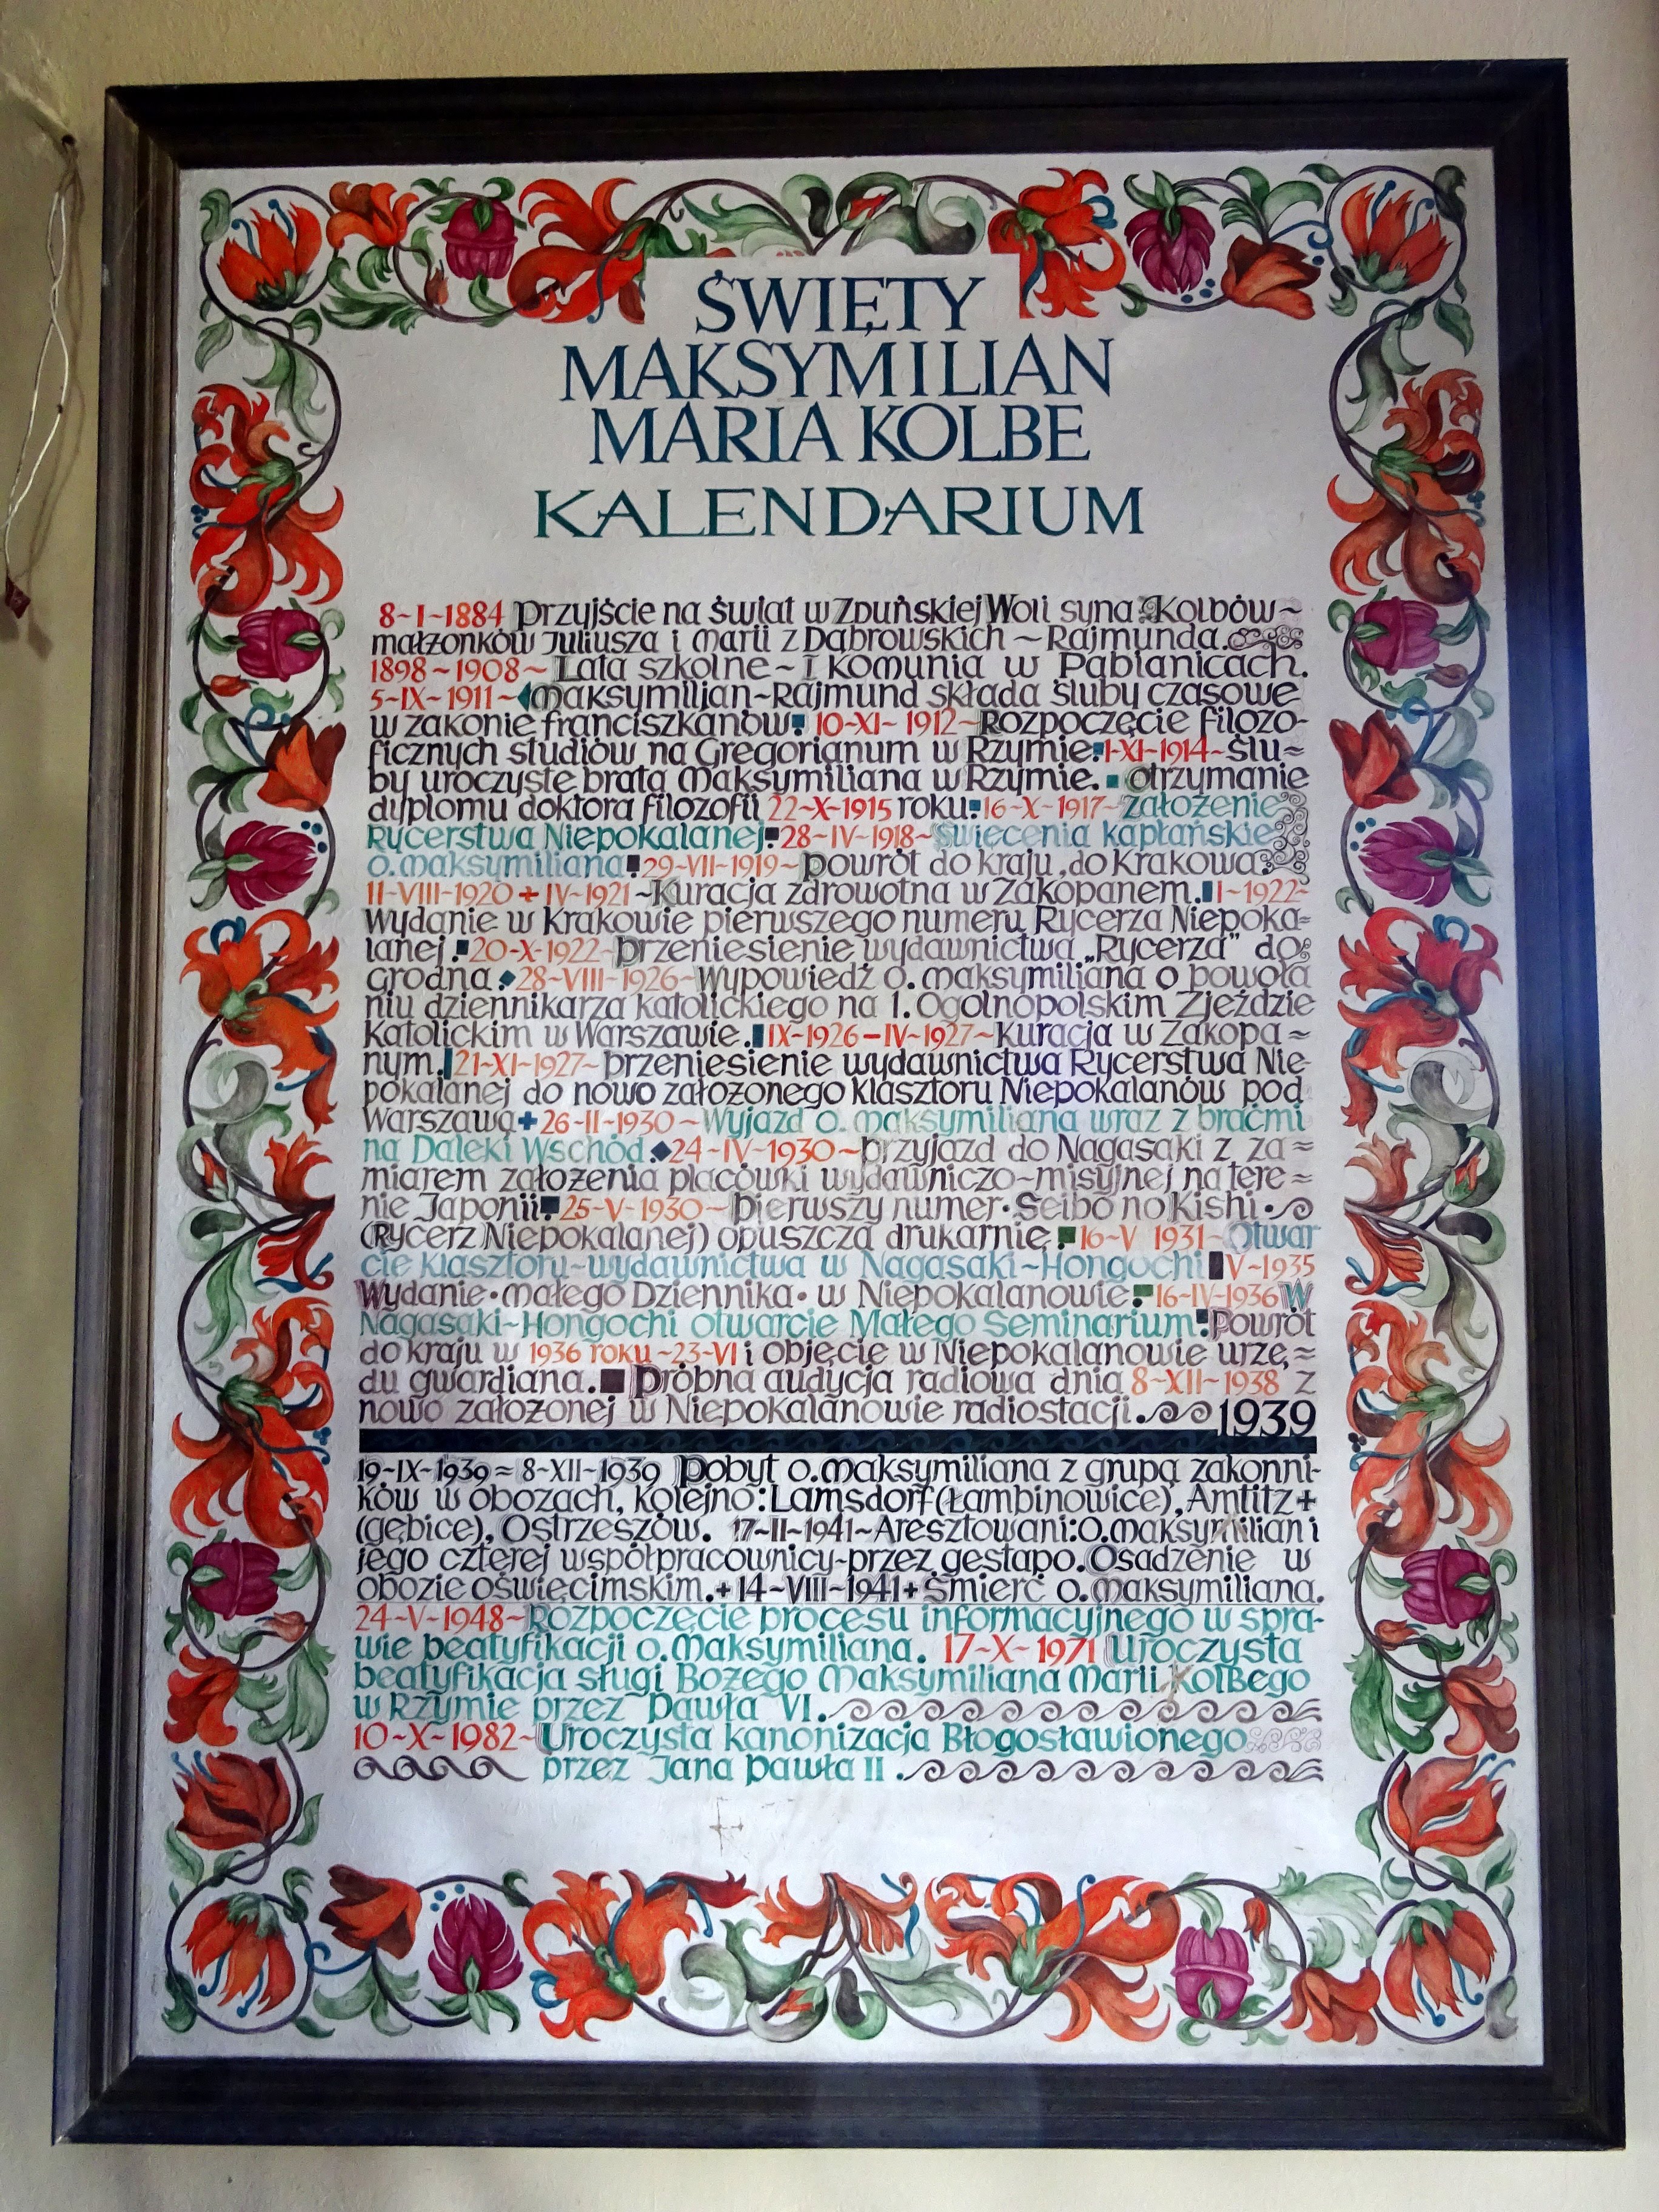 ŚWIĘTY
MAKSYMILIAN
MARIA KOLBE
KALENDARIUM
8~I~1884 Przyjście na świat w Zduńskiej Woli syna Kolbów~
małżonków Juliusza i Marii z Dąbrowskich ~ Rajmunda.
1898~1908~ Lata szkolne ~ I Komunia w Pabianicach.
5~IX~1911~ Maksymilian~Rajmund składa śluby czasowe
w zakonie franciszkanów 10~XI~1912~ Rozpoczęcie filozo-
ficznych studiów na Gregorianum w Rzymie 1~XI~1914~ Ślu=
by uroczyste brata Maksymiliana w Rzymie. Otrzymanie
dyplomu doktora filozofii 22~X~1915 roku 16~X~1917~ Założenie
Rycerstwa Niepokalanej 28~IV~1918~ Święcenia kapłańskie
o. Maksymiliana 29~VII~1919~ Powrót do kraju, do Krakowa
11~VIII~1920 ÷ IV~1921 ~ Kuracja zdrowotna w Zakopanem. I~1922~
Wydanie w Krakowie pierwszego numeru Rycerza Niepoka=
lanej. 20~X~1922~ Przeniesienie wydawnictwa „Rycerza” do
Grodna 28~VIII~1926~ Wypowiedź o. Maksymiliana o powoła
niu dziennikarza katolickiego na 1. Ogólnopolskim Zjeździe
Katolickim w Warszawie. IX~1926 – IV~1927~ Kuracja w Zakopa=
nym. 21~XI~1927~ Przeniesienie wydawnictwa Rycerstwa Nie-
pokalanej do nowo założonego klasztoru Niepokalanów pod
Warszawą 26~II~1930~ Wyjazd o. Maksymiliana wraz z braćmi
na Daleki Wschód 24~IV~1930~ Przyjazd do Nagasaki z za=
miarem założenia placówki wydawniczo-misyjnej na tere=
nie Japonii 25~V~1930~ Pierwszy numer · Seibo no Kishi ·
(Rycerz Niepokalanej) opuszcza drukarnię. 16~V 1931~ Otwar
cie klasztoru~wydawnictwa w Nagasaki~Hongochi V~1935
Wydanie · Małego Dziennika · w Niepokalanowie 16~IV~1936 W
Nagasaki~Hongochi otwarcie Małego Seminarium Powrót
do kraju w 1936 roku ~23~VI i objęcie w Niepokalanowie urzę=
du gwardiana. Próbna audycja radiowa dnia 8~XII~1938 z
nowo założonej w Niepokalanowie radiostacji. 1939
19~IX~1939 = 8~XII~1939 Pobyt o. Maksymiliana z grupą zakonni-
ków w obozach, kolejno: Lamsdorf (Łambinowice), Amtitz +
(Gębice), Ostrzeszów. 17~II~1941~ Aresztowani: O. Maksymilian i
jego czterej współpracownicy-przez gestapo. Osadzenie w
obozie oświęcimskim. + 14~VIII~1941 + Śmierć o. Maksymiliana.
24~V~1948~ Rozpoczęcie procesu informacyjnego w spra-
wie beatyfikacji o. Maksymiliana. 17~X~1971 Uroczysta
beatyfikacja sługi Bożego Maksymiliana Marii Kolbego
w Rzymie przez Pawła VI.
10~X~1982~ Uroczysta kanonizacja Błogosławionego
przez Jana Pawła II.